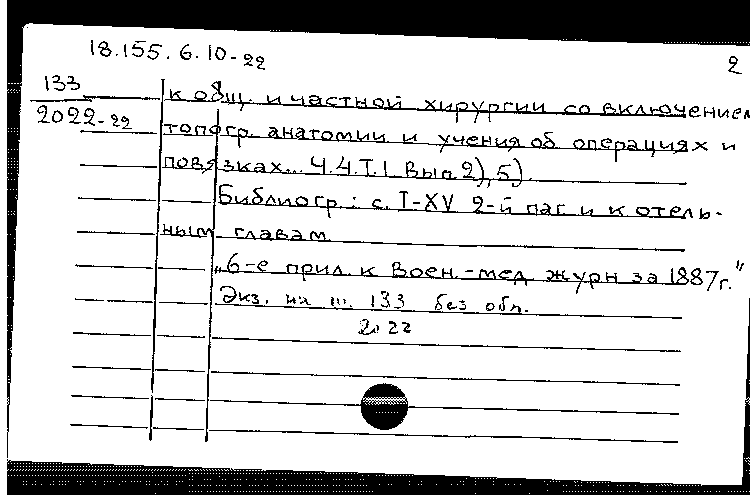 18.155.6.10-22
2
133
2022-22
к общ. и частной хирургии со включением
топогр. анатомии и учения об операциях и
повязках... Ч.4.Т.1. Вып 2), 5).
Библиогр.: с. I-XV 2-й паг и к отель-
ным главам
„6-е прил. к Воен.-мед журн за 1887г."
Экз. на ш. 133 без обл.
2022